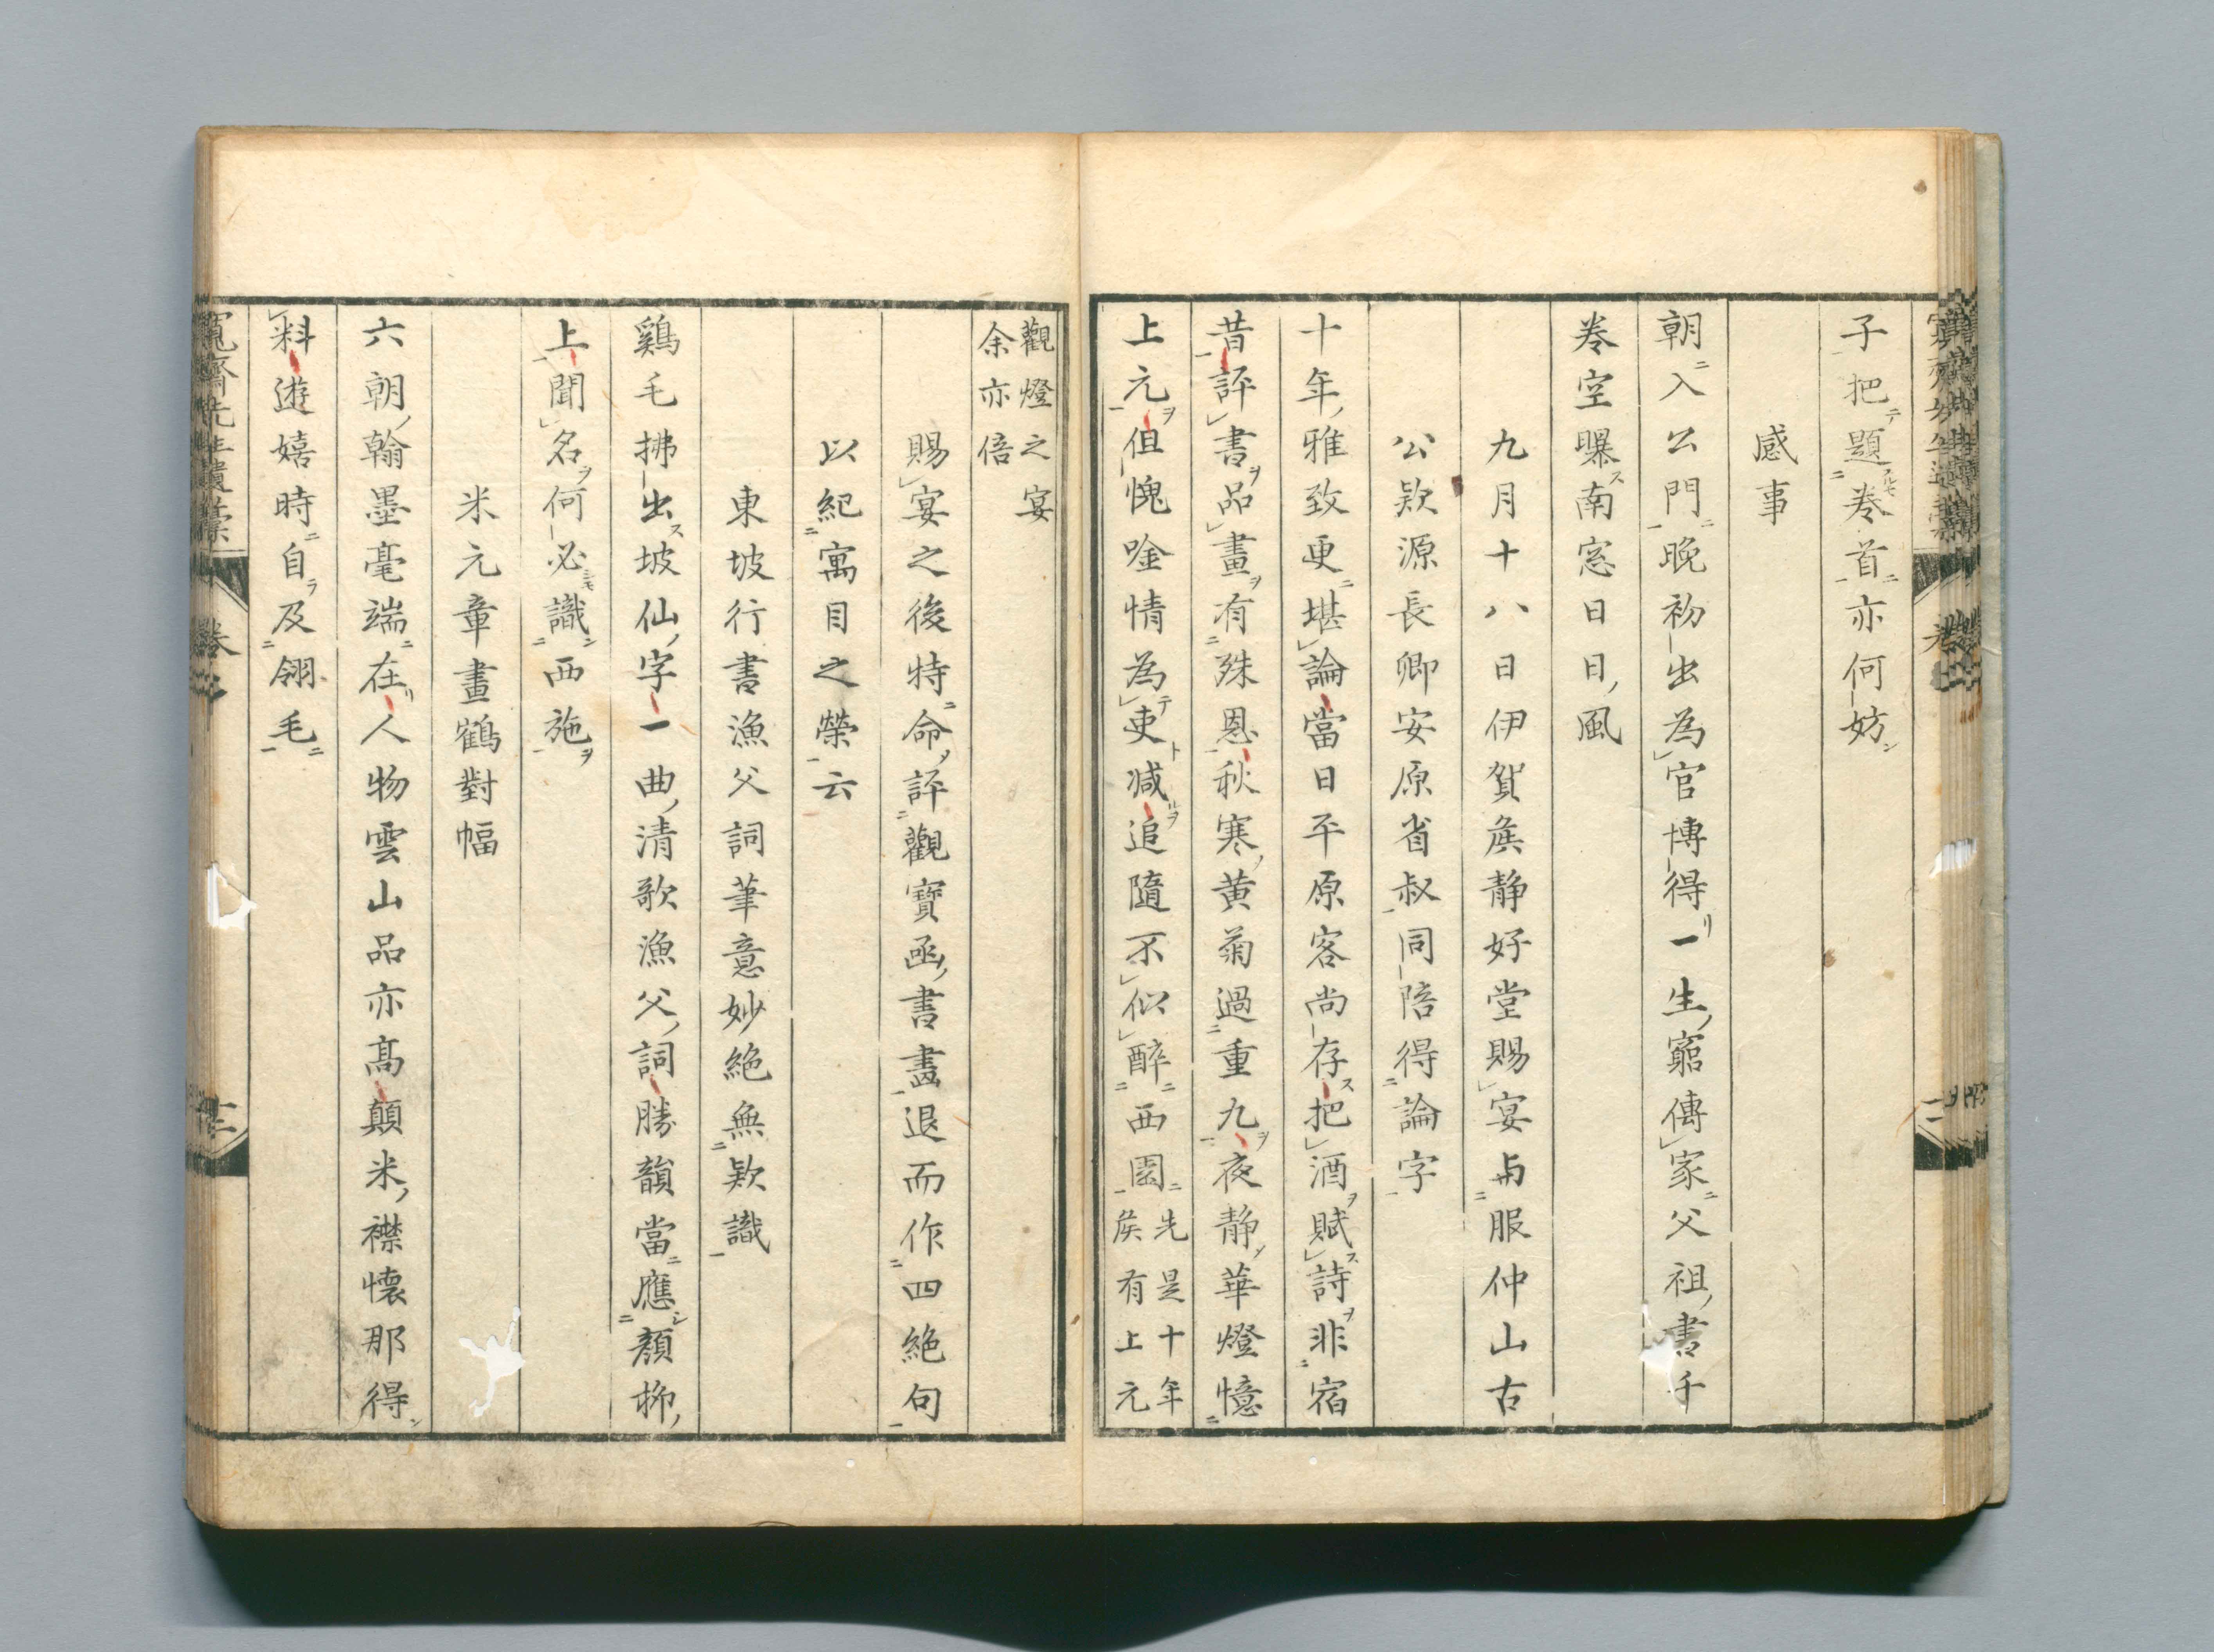 子把題卷首亦何妨
感事
朝入公門晚初出為官博得一生窮傳家父祖書千
卷空曝南窓日日風
九月十八日伊賀侯静好堂賜宴与服仲山古
公款源長卿安原省叔同陪得論字
十年雅致更堪論當日平原客尚存把酒賦詩非宿
昔評書品畫有殊恩秋寒黄菊過重九夜静華燈憶
上元但愧唫情為吏減追隨不似醉西園先是十年
侯有上元
觀燈之宴
余亦倍
賜宴之後特命評觀寶函書畫退而作四絶句
以紀寓目之榮云
東坡行書漁父詞筆意妙絶無款識
鷄毛拂出坡仙字一曲清歌漁父詞勝韻當應顏柳
上聞名何必識西施
米元章畫鶴對幅
六朝翰墨毫端在人物雲山品亦髙顛米襟懐那得
料遊嬉時自及翎毛